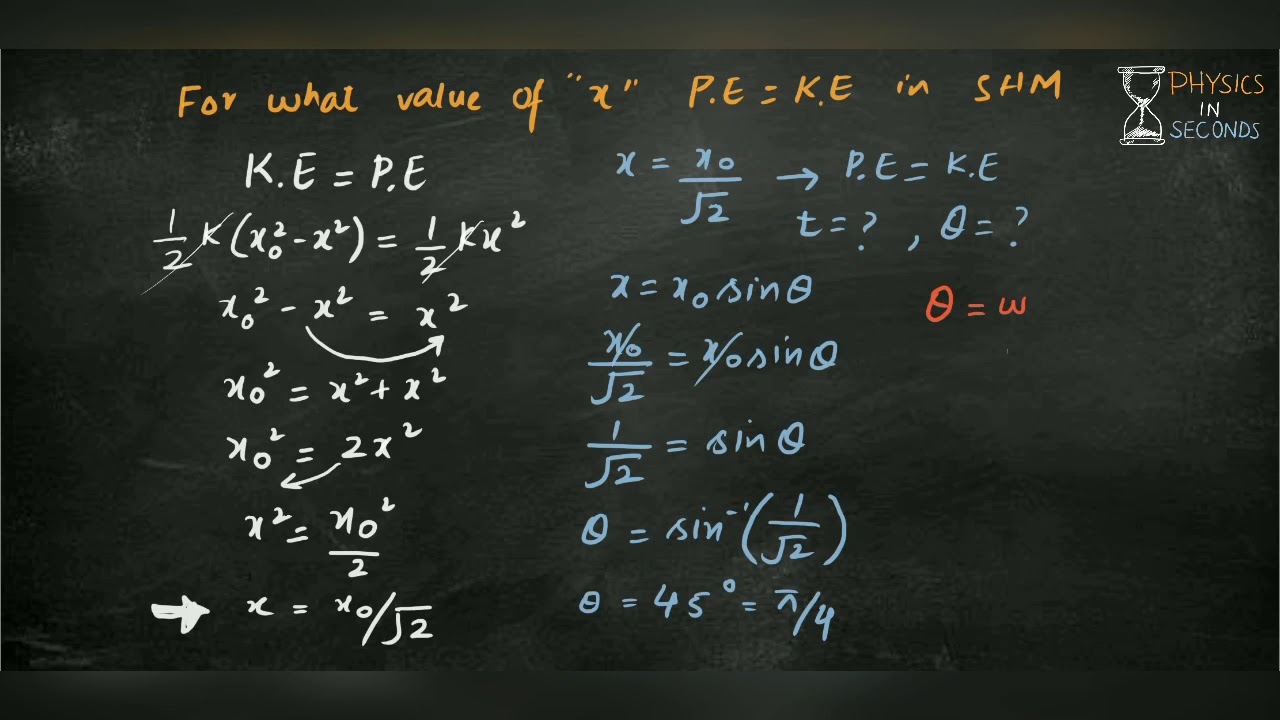 For what value of "x" P.E = K.E in SHM
PHYSICS
IN
SECONDS
K.E = P.E
1/2 K(x₀² - x²) = 1/2 Kx²
x₀² - x² = x²
x₀² = x² + x²
x₀² = 2x²
x² = x₀²/2
x = x₀/√2
x = x₀/√2 → P.E = K.E
t = ? , θ = ?
x = x₀ sinθ
x₀/√2 = x₀ sinθ
1/√2 = sinθ
θ = sin⁻¹(1/√2)
θ = 45° = π/4
θ = ω